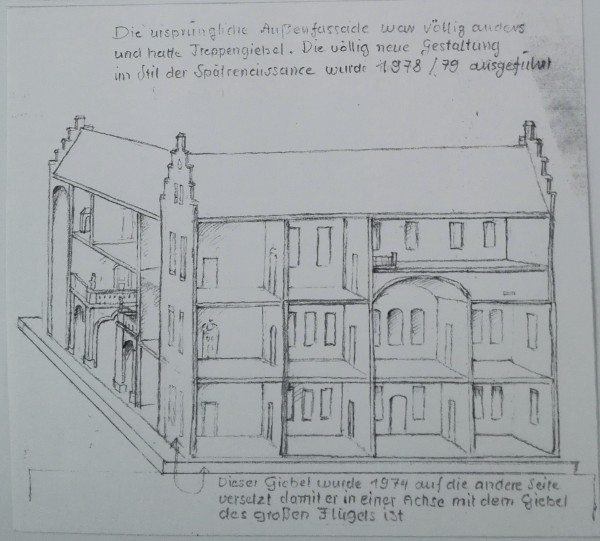 Die ursprüngliche Außenfassade war völlig anders
und hatte Treppengiebel. Die völlig neue Gestaltung
im Stil der Spätrenaissance wurde 1978/79 ausgeführt
Dieser Giebel wurde 1974 auf die andere Seite
versetzt damit er in einer Achse mit dem Giebel
des großen Flügels ist